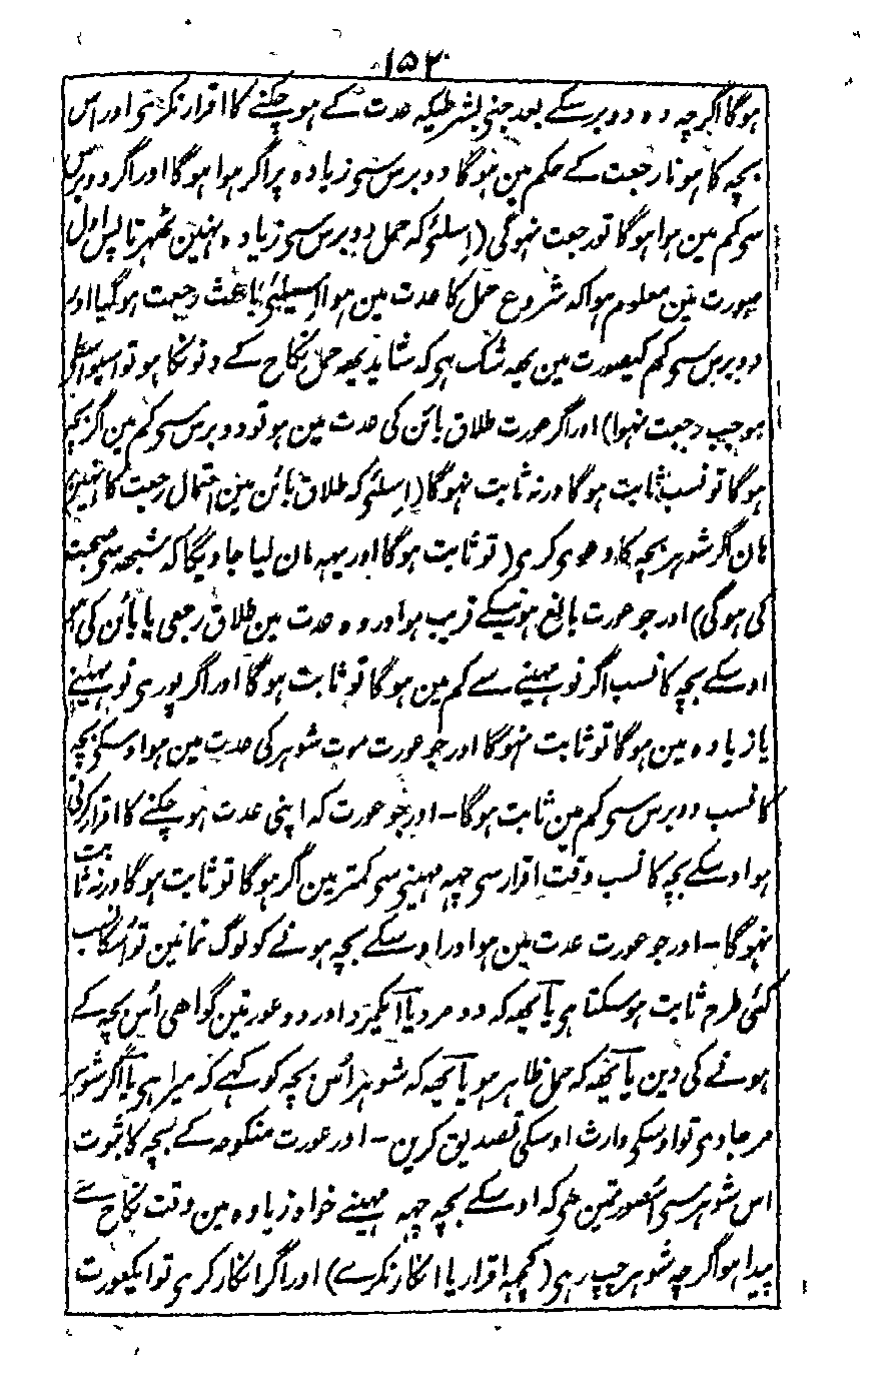 ۱۵۲
ہوگا اگرچہ وہ دو برسکے بعد جنی بشرطیکہ عدت کے ہو چکنے کا اقرار نکرتی اور اس
بچہ کا ہونا رجعت کے حکم مین ہوگا دو برس سی زیادہ پر اگر ہوا ہوگا اور اگر دو برس
سی کم مین ہوا ہوگا تو رجعت نہوگی (اسلئی کہ حمل دو برس سی زیادہ نہین ٹھہرتا پس اول
صورت مین معلوم ہوا کہ شروع حمل کا عدت مین ہوا اسیلئی باعث رجعت ہوگیا اور
دو برس سی کم کیصورت مین یہہ شک ہی کہ شاید یہہ حمل نکاح کے دنونکا ہو تو اسیواسطی
موجب رجعت نہوا) اور اگر عورت طلاق بائن کی عدت مین ہو تو دو برس سی کم مین اگر بچہ
ہوگا تو نسب ثابت ہوگا ورنہ ثابت نہوگا (اسلئی کہ طلاق بائن مین احتمال رجعت کا نہین)
ہان اگر شوہر بچہ کا دعوی کری (تو ثابت ہوگا اور یہہ مان لیا جاویگا کہ شبھہ سی صحبت
کی ہوگی) اور جو عورت بالغ ہونیکے قریب ہو اور وہ عدت مین طلاق رجعی یا بائن کی ہو
اوسکے بچہ کا نسب اگر نو مہینے سے کم مین ہوگا تو ثابت ہوگا اور اگر پوری نو مہینے
یا زیادہ مین ہوگا تو ثابت نہوگا اور جو عورت موت شوہر کی عدت مین ہو اوسکی بچہ
کا نسب دو برس سی کم مین ثابت ہوگا - اور جو عورت کہ اپنی عدت ہو چکنے کا اقرار کرتی
ہو اوسکے بچہ کا نسب وقت اقرار سی چہہ مہینی سی کمتر مین اگر ہوگا تو ثابت ہوگا ورنہ ثابت
نہوگا - اور جو عورت عدت مین ہو اور اوسکے بچہ ہونے کو لوگ نمانین تو اسکا نسب
کئی طرح ثابت ہوسکتا ہی یا یہہ کہ دو مرد یا ایکمرد اور دو عورتین گواھی اُس بچہ کے
ہونے کی دین یا یہہ کہ حمل ظاہر ہو یا یہہ کہ شوہر اُس بچہ کو کہے کہ میرا ہی یا اگر شوہر
مرجاوی تو اوسکی وارث اوسکی تصدیق کرین - اور عورت منکوحہ کے بچہ کا ثبوت
اس شوہر سی اسصورتمین ھی کہ اوسکے بچہ چہہ مہینے خواہ زیادہ مین وقت نکاح سے
پیدا ہو اگرچہ شوہر چپ رہی (کچھہ اقرار یا انکار نکرے) اور اگر انکار کری تو ایکعورت